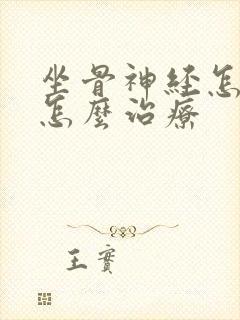 坐骨神经怎
怎麼治療
王實